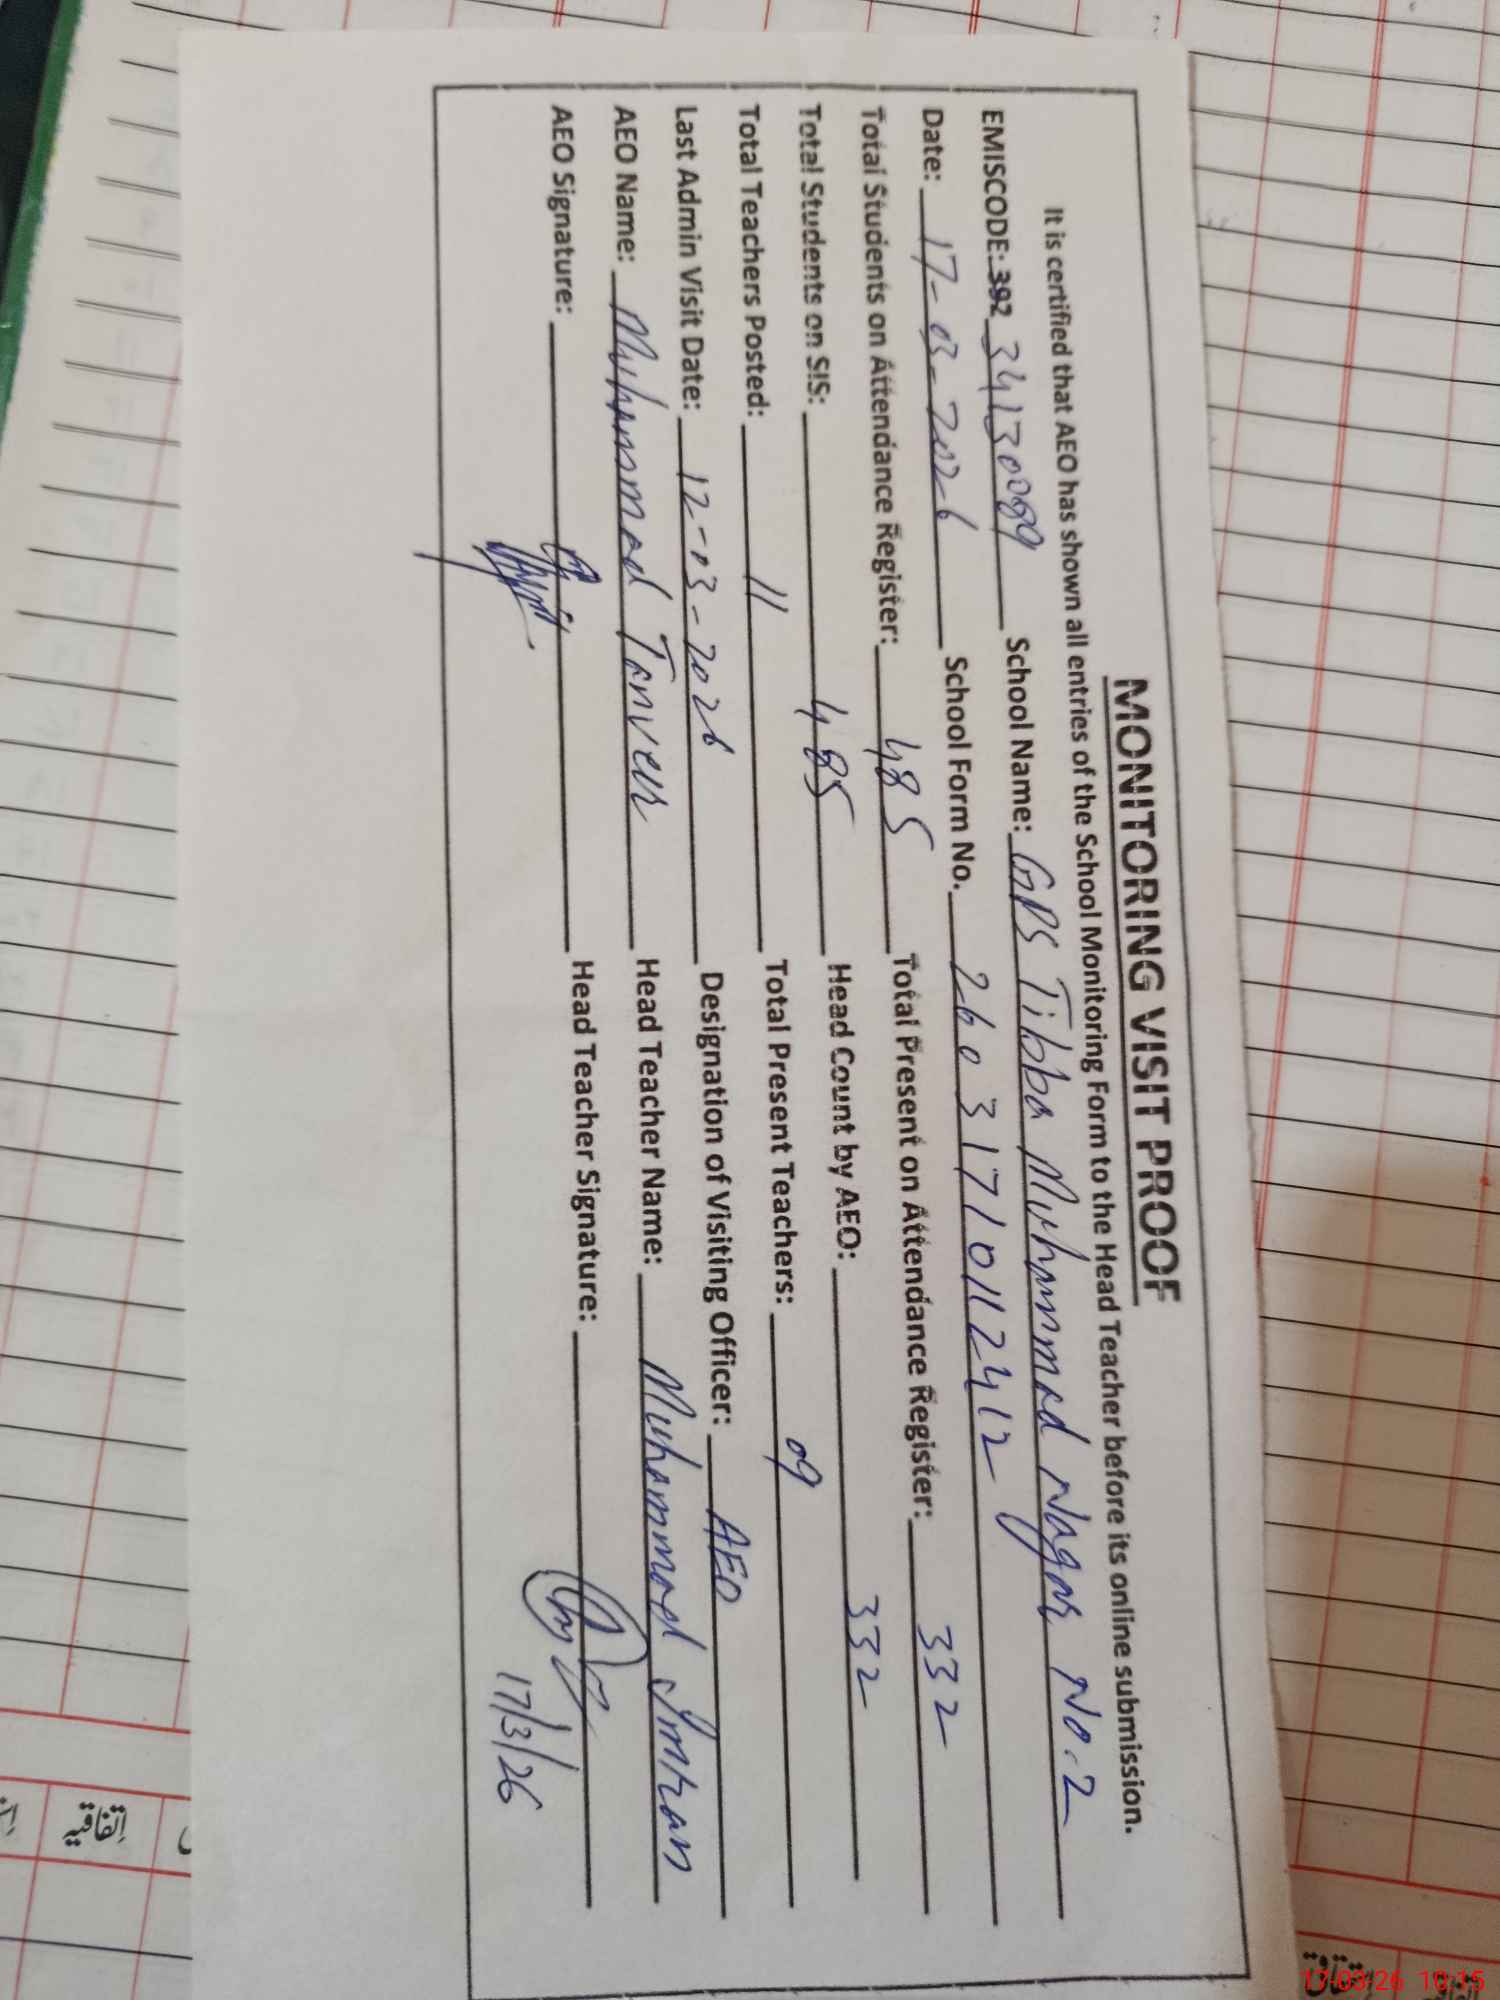 MONITORING VISIT PROOF
It is certified that AEO has shown all entries of the School Monitoring Form to the Head Teacher before its online submission.
EMISCODE: 392 34130089 School Name: GPS Tibba Muhammad Nagar No.2
Date: 17-03-2026 School Form No. 26031710112412
Total Students on Attendance Register: 485 Total Present on Attendance Register: 332
Total Students on SIS: 485 Head Count by AEO: 332
Total Teachers Posted: 11 Total Present Teachers: 09
Last Admin Visit Date: 12-03-2026 Designation of Visiting Officer: AEO
AEO Name: Muhammad Tanveer Head Teacher Name: Muhammad Imran
AEO Signature: Head Teacher Signature:
17/3/26
اتفاقیہ
17-03-26 10:15